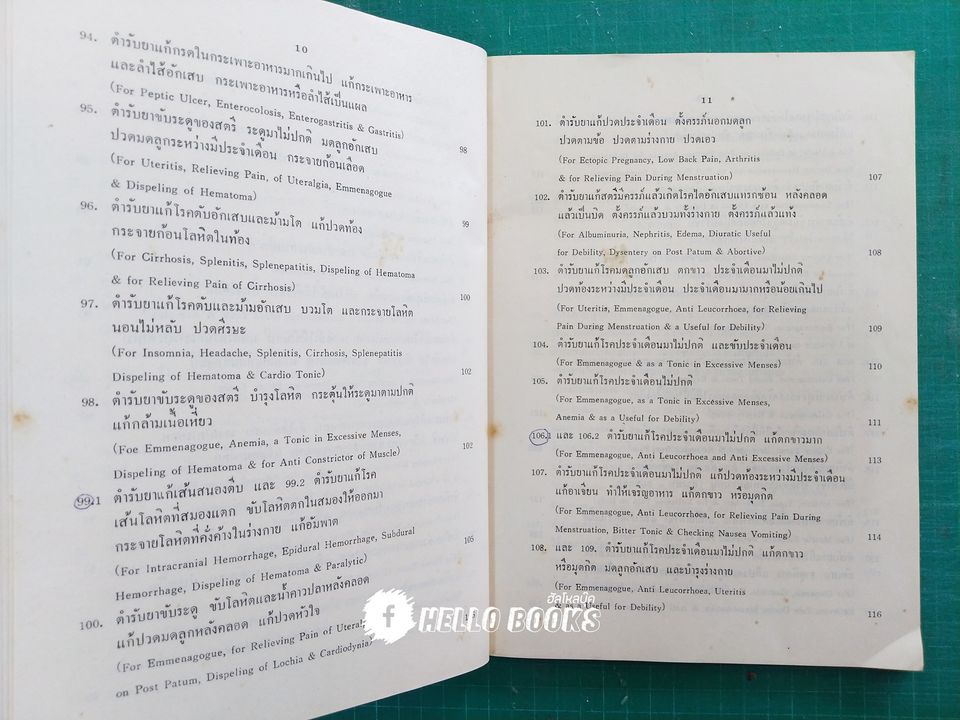 10
94. ตำรับยาแก้กรดในกระเพาะอาหารมากเกินไป แก้กระเพาะอาหาร
และลำไส้อักเสบ กระเพาะอาหารหรือลำไส้เป็นแผล
(For Peptic Ulcer, Enterocolosis, Enterogastritis & Gastritis) 98
95. ตำรับยาขับระดูของสตรี ระดูมาไม่ปกติ มดลูกอักเสบ
ปวดมดลูกระหว่างมีประจำเดือน กระจายก้อนเลือด
(For Uteritis, Relieving Pain, of Uteralgia, Emmenagogue
& Dispeling of Hematoma) 99
96. ตำรับยาแก้โรคตับอักเสบและม้ามโต แก้ปวดท้อง
กระจายก้อนโลหิตในท้อง
(For Cirrhosis, Splenitis, Splenepatitis, Dispeling of Hematoma
& for Relieving Pain of Cirrhosis) 100
97. ตำรับยาแก้โรคตับและม้ามอักเสบ บวมโต และกระจายโลหิต
นอนไม่หลับ ปวดศีรษะ
(For Insomnia, Headache, Splenitis, Cirrhosis, Splenepatitis
Dispeling of Hematoma & Cardio Tonic) 102
98. ตำรับยาขับระดูของสตรี บำรุงโลหิต กระตุ้นให้ระดูมาตามปกติ
แก้กล้ามเนื้อเหี่ยว
(Foe Emmenagogue, Anemia, a Tonic in Excessive Menses,
Dispeling of Hematoma & for Anti Constrictor of Muscle) 102
99.1 ตำรับยาแก้เส้นสนองตีบ และ 99.2 ตำรับยาแก้โรค
เส้นโลหิตที่สมองแตก ขับโลหิตตกในสมองให้ออกมา
กระจายโลหิตที่คั่งค้างในร่างกาย แก้อัมพาต
(For Intracranial Hemorrhage, Epidural Hemorrhage, Subdural
Hemorrhage, Dispeling of Hematoma & Paralytic) 105
100. ตำรับยาขับระดู ขับโลหิตและน้ำคาวปลาหลังคลอด
แก้ปวดมดลูกหลังคลอด แก้ปวดหัวใจ
(For Emmenagogue, for Relieving Pain of Uteral
on Post Patum, Dispeling of Lochia & Cardiodynia)
11
101. ตำรับยาแก้ปวดประจำเดือน ตั้งครรภ์นอกมดลูก
ปวดตามข้อ ปวดตามร่างกาย ปวดเอว
(For Ectopic Pregnancy, Low Back Pain, Arthritis
& for Relieving Pain During Menstruation) 107
102. ตำรับยาแก้สตรีมีครรภ์แล้วเกิดโรคไตอักเสบแทรกซ้อน หลังคลอด
แล้วเป็นบิด ตั้งครรภ์แล้วบวมทั้งร่างกาย ตั้งครรภ์แล้วแท้ง
(For Albuminuria, Nephritis, Edema, Diuratic Useful
for Debility, Dysentery on Post Patum & Abortive) 108
103. ตำรับยาแก้โรคมดลูกอักเสบ ตกขาว ประจำเดือนมาไม่ปกติ
ปวดท้องระหว่างมีประจำเดือน ประจำเดือนมามากหรือน้อยเกินไป
(For Uteritis, Emmenagogue, Anti Leucorrhoea, for Relieving
Pain During Menstruation & a Useful for Debility) 109
104. ตำรับยาแก้โรคประจำเดือนมาไม่ปกติ และขับประจำเดือน
(For Emmenagogue & as a Tonic in Excessive Menses) 110
105. ตำรับยาแก้โรคประจำเดือนไม่ปกติ
(For Emmenagogue, as a Tonic in Excessive Menses,
Anemia & as a Useful for Debility) 111
106.1 และ 106.2 ตำรับยาแก้โรคประจำเดือนมาไม่ปกติ แก้ตกขาวมาก
(For Emmenagogue, Anti Leucorrhoea and Anti Excessive Menses) 113
107. ตำรับยาแก้โรคประจำเดือนมาไม่ปกติ แก้ปวดท้องระหว่างมีประจำเดือน
แก้อาเจียน ทำให้เจริญอาหาร แก้ตกขาว หรือมุตกิต
(For Emmenagogue, Anti Leucorrhoea, for Relieving Pain During
Menstruation, Bitter Tonic & Checking Nausea Vomiting) 114
108. และ 109. ตำรับยาแก้โรคประจำเดือนมาไม่ปกติ แก้ตกขาว
หรือมุตกิต มดลูกอักเสบ และบำรุงร่างกาย
(For Emmenagogue, Anti Leucorrhoea, Uteritis
& as a Useful for Debility) 116
ฮัลโหลบุ๊ค
f HELLO BOOKS